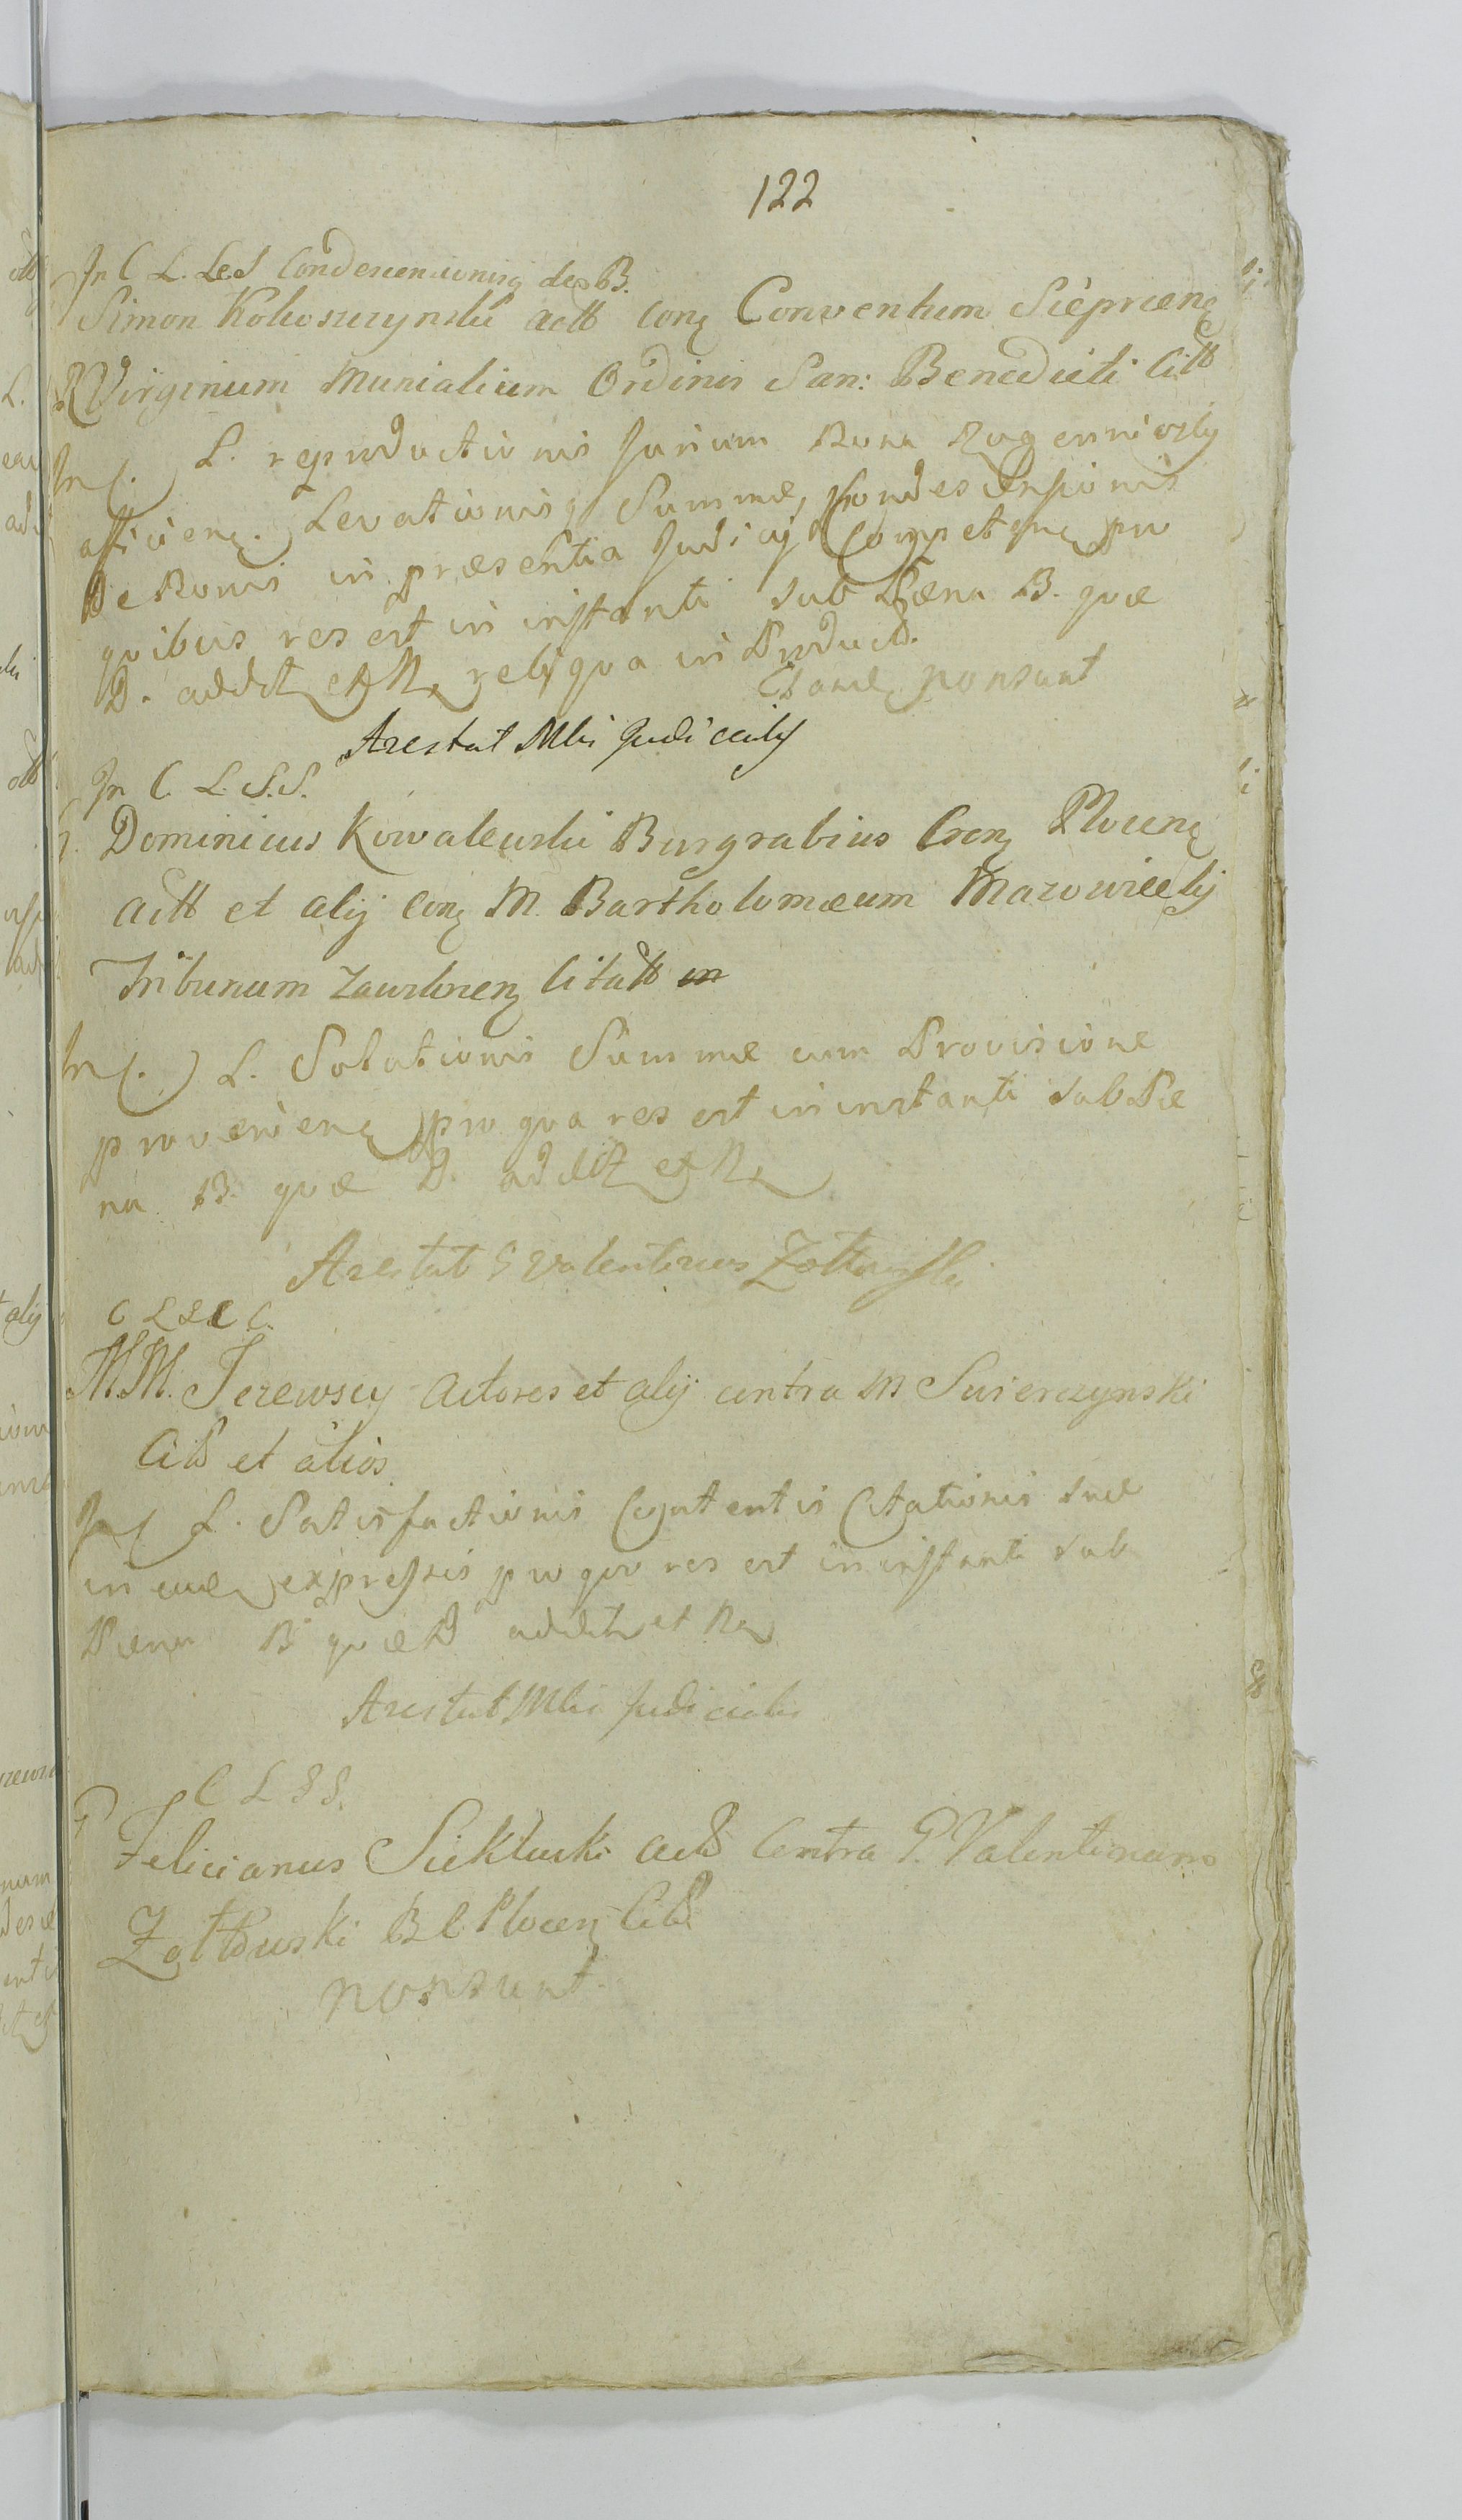 122
In C L. LeS Condescensionisq de B.
Simon Kołuszczynski actt conq Conventum Sieprcenq
R Virginum Munialium Ordinis San: Benedicti Citt
In C. L. reproductionis Jurium Bona
afficienq. Levationisq Summæ, Condescensionis
De Bonis in præsentia Judicij Competenq pro
quibus res est in instanti sub Pæna B. quæ
D. addit et N, reliqua in Product.
nonsunt
Arestat Mbi Judicialy
In C. L. S.S.
G. Dominicus Kowalewski Burgrabius Cronq Plocenq
actt et alij conq M. Bartholomæum Mazowiecky
Tribunum Zawskrzenq Citatt in
In C. L. Solutionis Summæ cum Provisione
provenienq pro qua res est in instanti sub Pæ
na B. quæ D. addit et N,
Arestat G Valentinus Zołtowski
C L S S C C.
M.M. Jezewscy Actores et alij contra M Swierczynski
Citt et alios
In C L. Satisfactionis Contentis Citationis suæ
in eiusq expressis pro quo res est in instanti sub
Pæna B quæ D addit et N,
Arestat Mbi Judicialis
C L S S.
G Felicianus Siekłucki actt Contra G. Valentinum
Zołtowski B C Plocenq Citt
nonsunt.